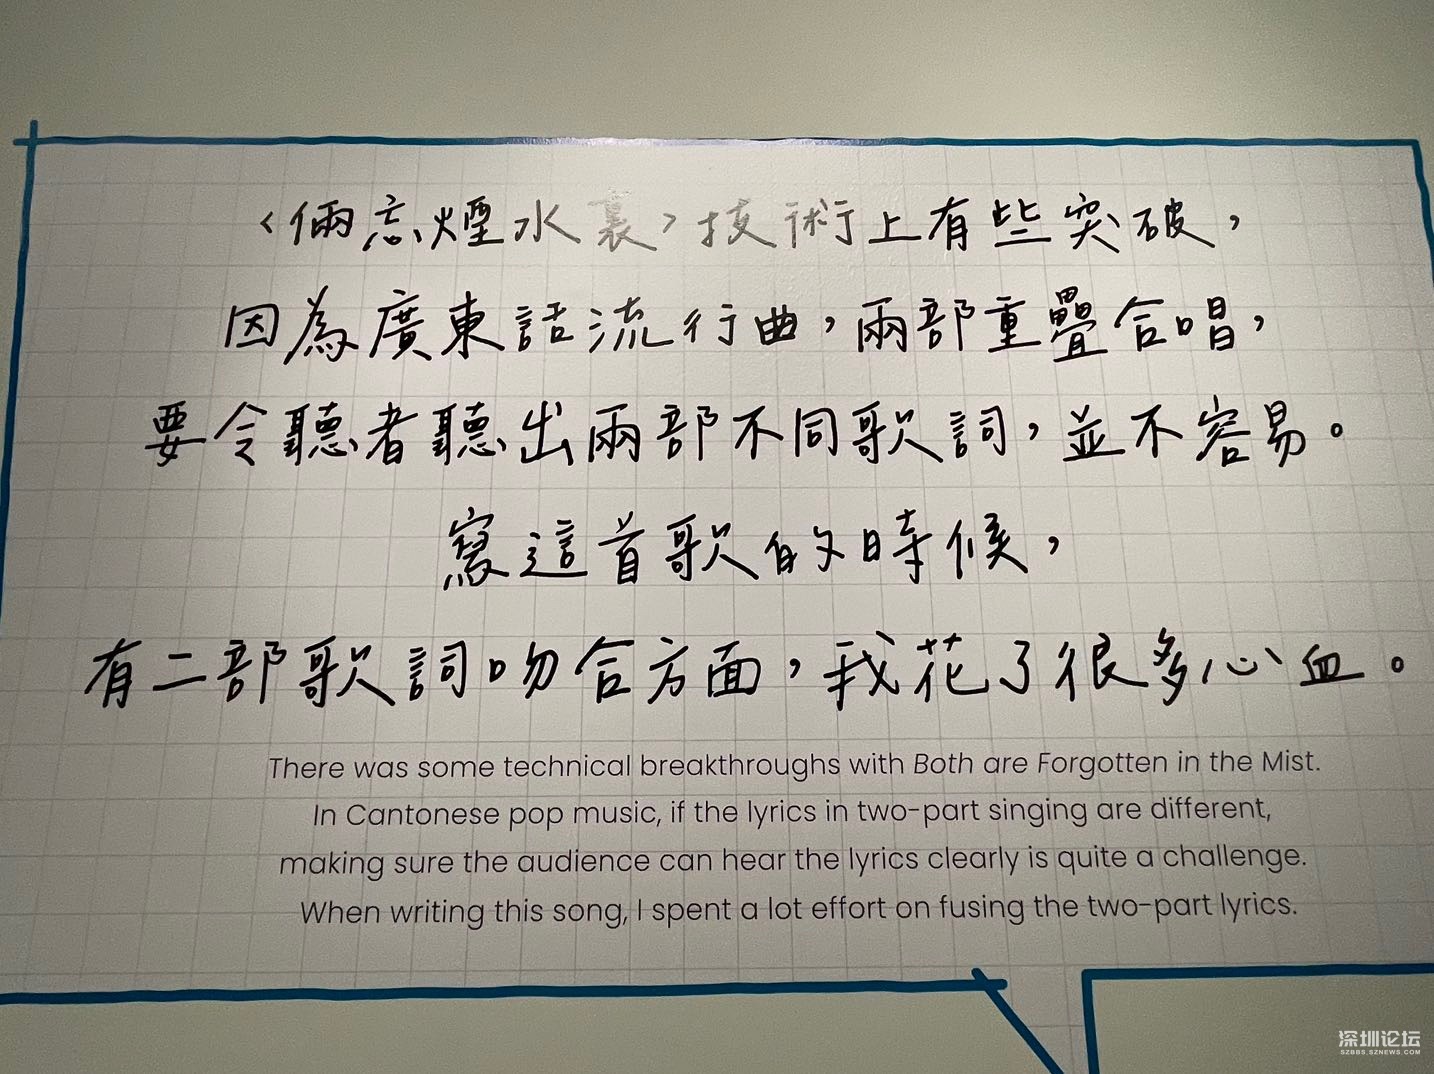 〈倆忘煙水裏〉技術上有些突破，
因為廣東話流行曲，兩部重疊合唱，
要令聽者聽出兩部不同歌詞，並不容易。
寫這首歌的時候，
有二部歌詞吻合方面，我花了很多心血。
There was some technical breakthroughs with Both are Forgotten in the Mist.
In Cantonese pop music, if the lyrics in two-part singing are different,
making sure the audience can hear the lyrics clearly is quite a challenge.
When writing this song, I spent a lot effort on fusing the two-part lyrics.
深圳论坛
SZBBS.SZNEWS.COM